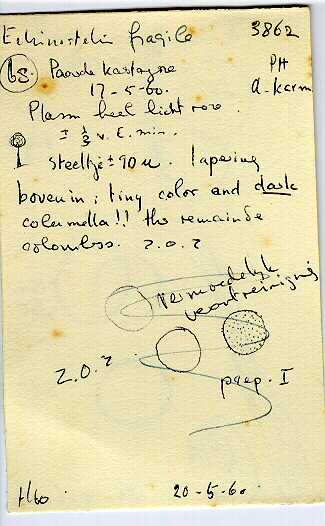 Echinostelin fragile 3862
68. Paarde Kastagne PH
17-5-60. a. Karm
Plasm heel licht rose.
± 1/3 v. E. min.
Steeltje ± 90 u. Tapering
bovenin; tiny color and dark
columella!! the remainde
colorless. Z.O.Z
vermoedelijk
veontreinigis
Z.O.Z
praep. I
20-5-60.